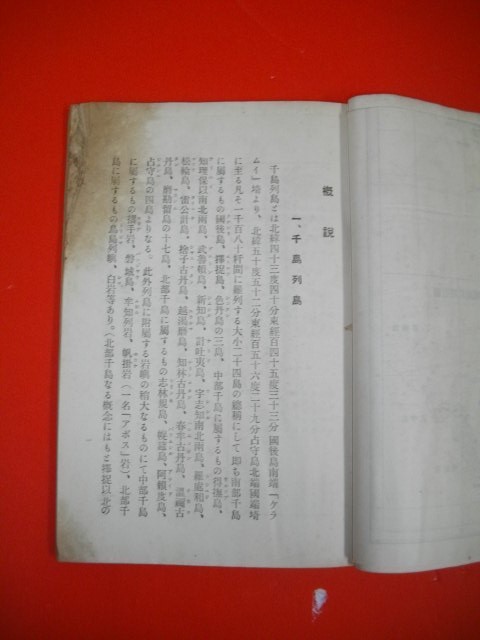 概説
一、千島列島
千島列島とは北緯四十三度四十分東經百四十五度三十三分 國後島南端「ケラ
ムイ」埼より、北緯五十度五十二分東經百五十六度二十九分占守島北端國端埼
に至る凡そ一千百八十粁間に羅列する大小二十四島の總稱にして即ち南部千島
に屬するもの國後島、擇捉島、色丹島の三島、中部千島に屬するもの得撫島、
知理保以南北南島、武魯頓島、新知島、計吐夷島、宇志知南北南島、羅處和島、
松輪島、雷公計島、捨子古丹島、越渇磨島、知林古丹島、春牟古丹島、溫禰古
丹島、磨勘留島の十七島、北部千島に屬するもの志林規島、幌筵島、阿賴度島、
占守島の四島よりなる。此外列島に附屬する岩嶼の稍大なるものにて中部千島
に屬するもの摺手岩、磐城島、牟知列岩、帆掛岩(一名「アボス」岩)、北部千
島に屬するもの鳥島列嶼、白岩等あり。(北部千島なる概念にはもと擇捉以北の